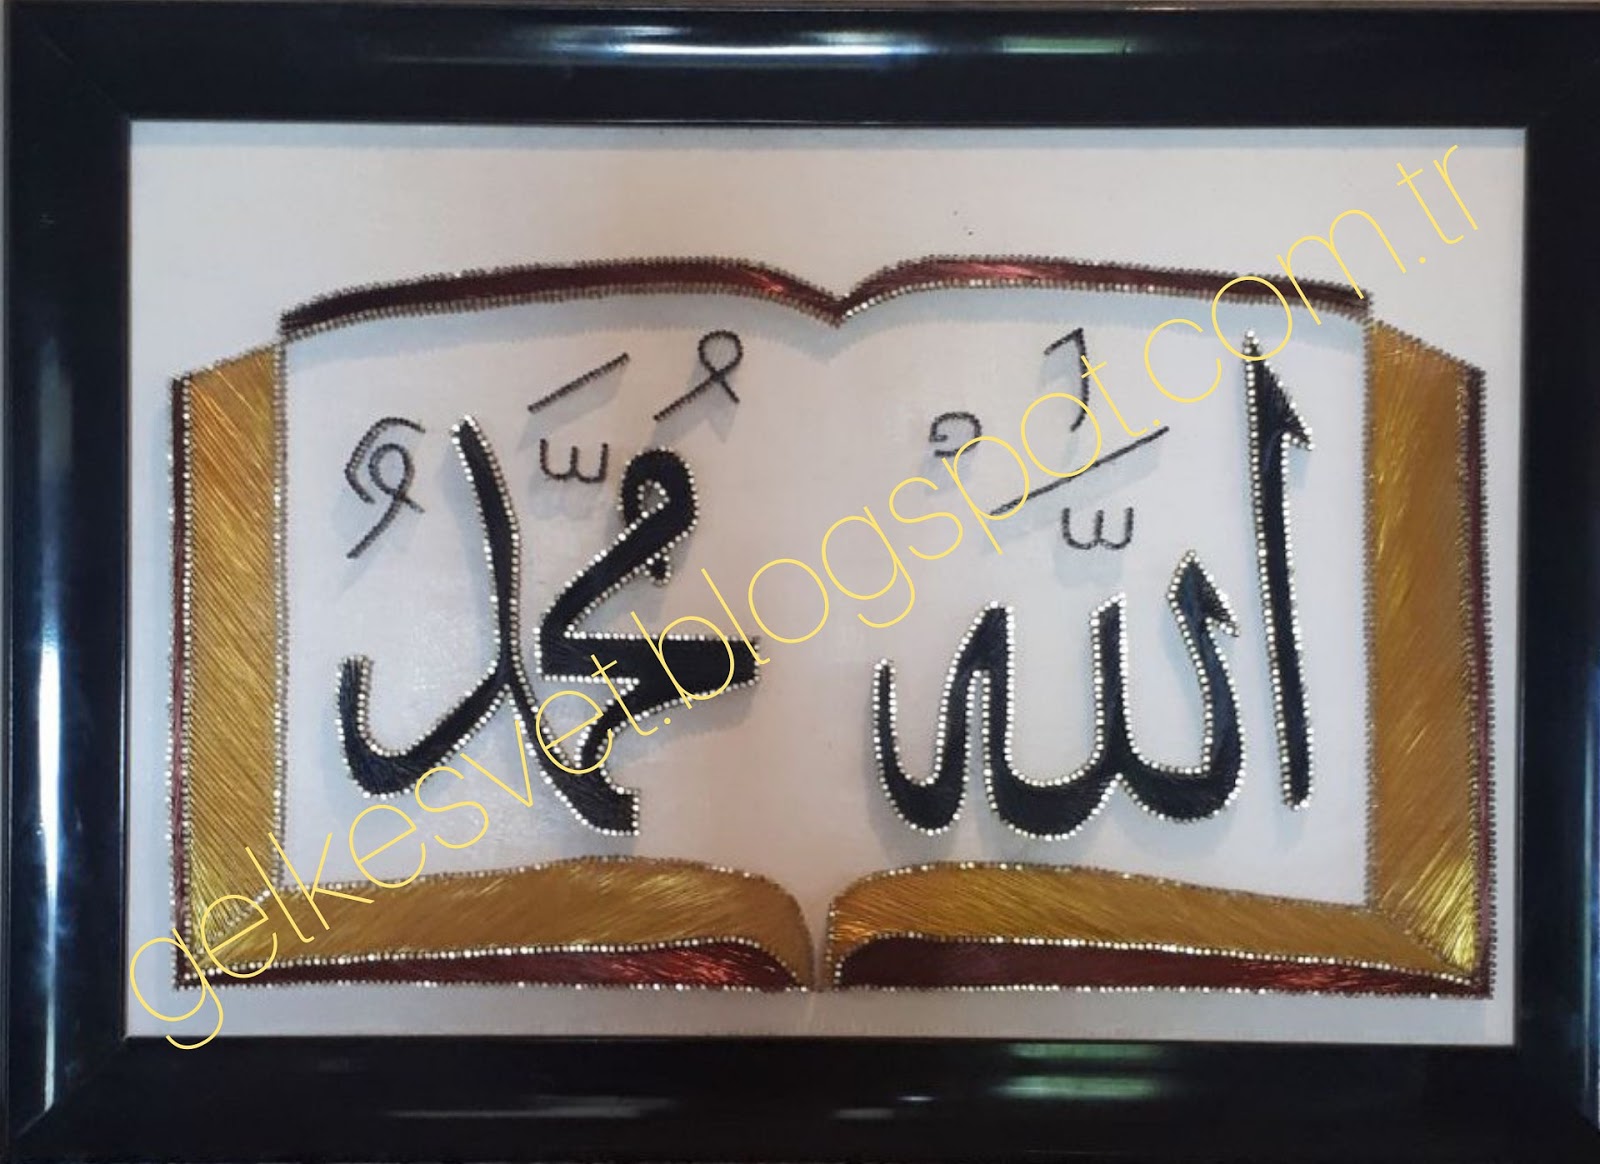 الله
مُحَمَّدٌ
gelkesvet.blogspot.com.tr